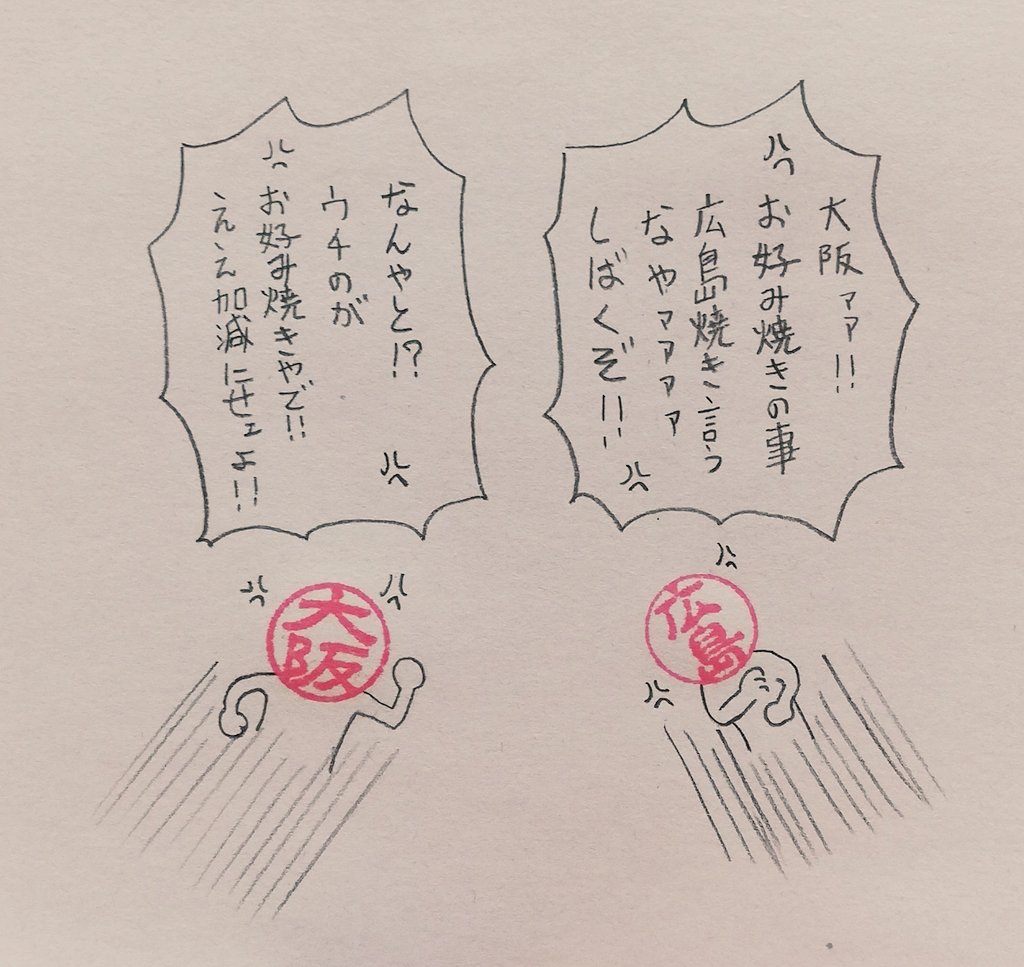 大阪ァァ!!
お好み焼きの事
広島焼き言う
なやァァァァ
しばくぞ!!
なんやと!?
ウチのが
お好み焼きやで!!
ええ加減にせェよ!!
広島
大阪